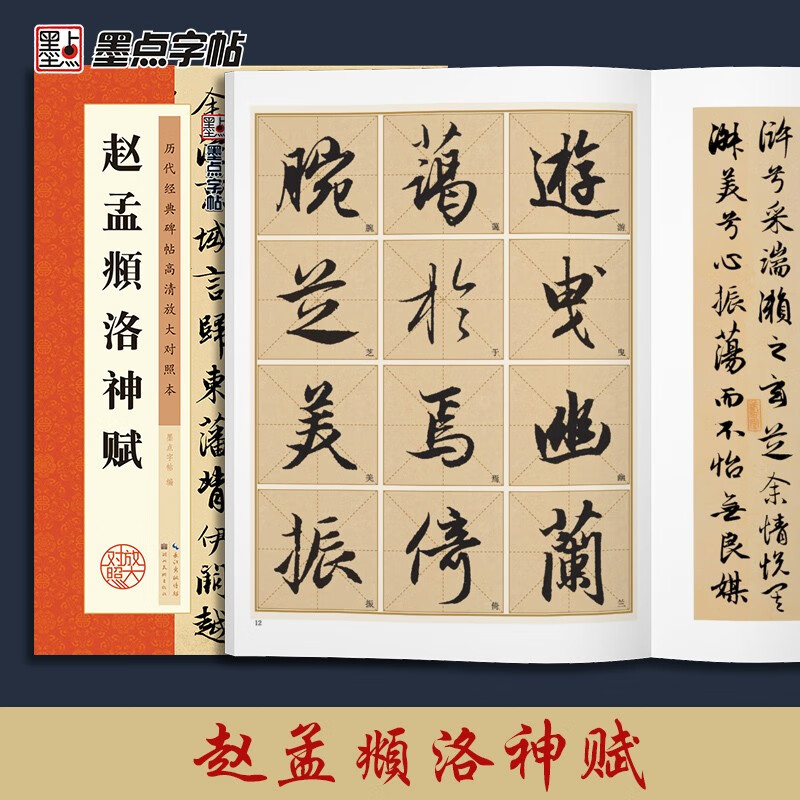 墨点
墨点字帖
赵孟頫洛神赋
历代经典碑帖高清放大对照本
墨点字帖 编
放大对照
长江出版传媒
湖北美术出版社
墨点字帖
域言歸東藩背伊闕越
遊 游
曳 曳
幽 幽
蘭 兰
藹 蔼
於 于
焉 焉
倚 倚
腕 腕
芝 芝
美 美
振 振
12
滸兮采湍瀨之玄芝余情悅其
淑美兮心振蕩而不怡無良媒
赵孟頫洛神赋